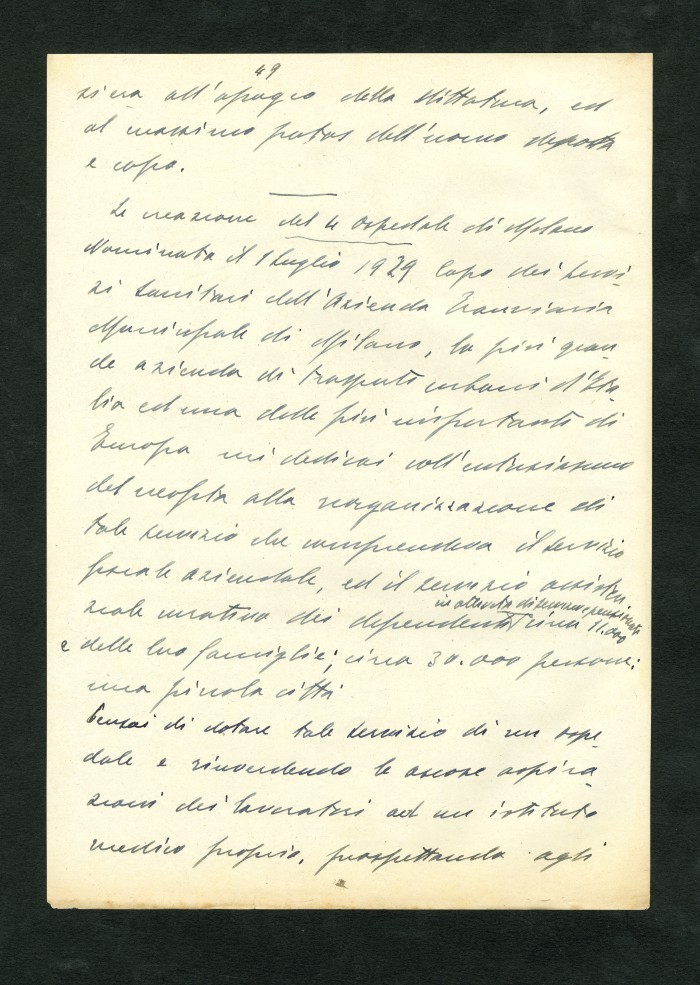 49
ziera all'apogeo della dittatura, ed
al massimo potus dell'uomo
e capo.
La creazione del 4 ospedale di Milano
Nominato il 1 luglio 1929 Capo dei servi-
zi sanitari dell'Azienda Tranviaria
Municipale di Milano, la più gran-
de azienda di trasporti urbani d'Ita-
lia ed una delle più importanti di
Europa mi dedicai coll'entusiasmo
del neofita alla reorganizzazione di
tale servizio che comprendeva il servizio
fiscale aziendale, ed il servizio assisten
ziale curativo dei dipendenti circa 11.000
in attività di servizio e pensionati
e delle loro famiglie; circa 30.000 persone:
una piccola città
Pensai di dotare tale servizio di un ospe-
dale e rinverdendo le ascose aspira-
zioni dei lavoratori ad un istituto
medico proprio, prospettando agli